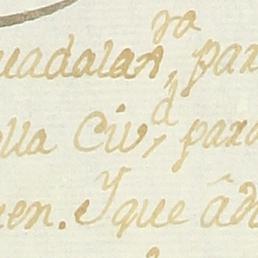 uadalax.ra, par
lla Civ.d, para
en. Y que ád